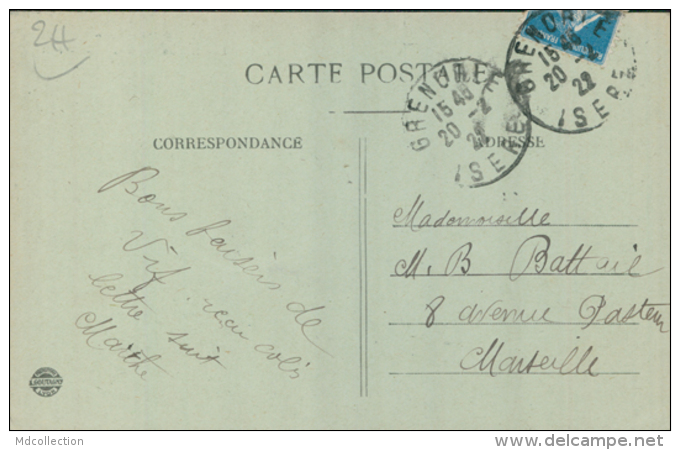 2H
CARTE POSTALE
GRENOBLE
15 45
20 -2
22
ISERE
GRENOBLE
15 45
20 -2
22
ISERE
CORRESPONDANCE
ADRESSE
Bons baisers de
Vif. reçu colis
lettre suit
Marthe
Mademoiselle
M. B Battail
8 avenue Pasteur
Marseille
Mdcollection
www.delcampe.net